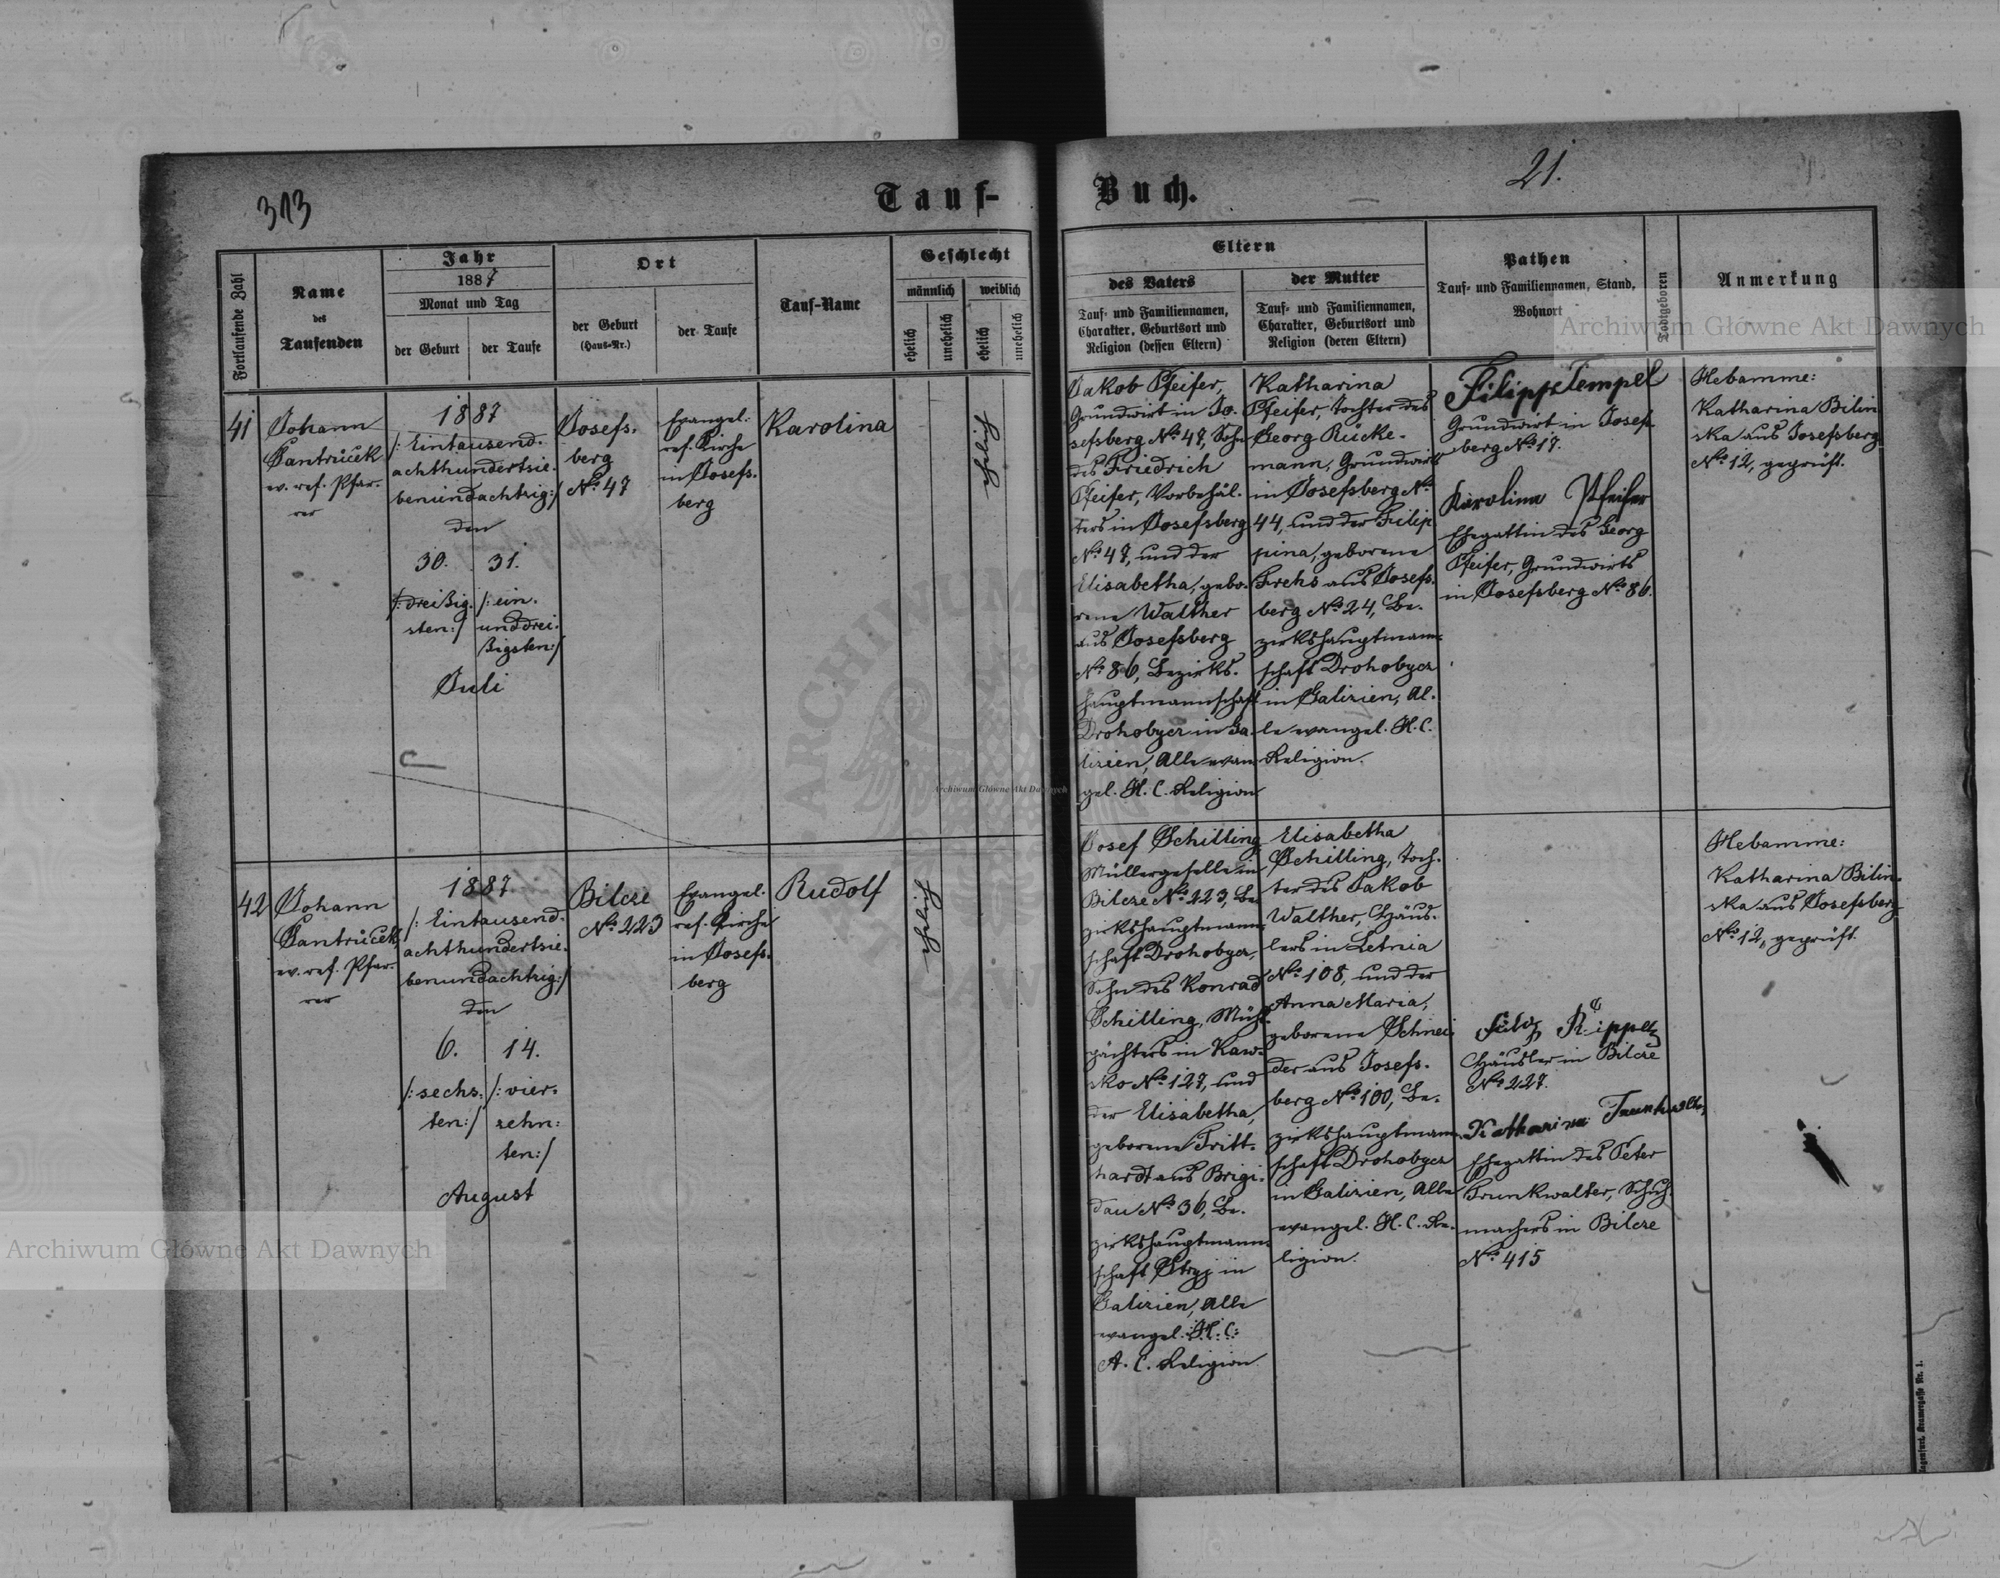 313
Tauf-
Buch.
21.
Fortlaufende Zahl
Name
des
Taufenden
Jahr
1887
Monat und Tag
der Geburt
der Taufe
Ort
der Geburt
(Haus-Nr.)
der Taufe
Tauf-Name
Geschlecht
männlich
weiblich
ehelich
unehelich
ehelich
unehelich
Eltern
des Vaters
Tauf- und Familiennamen,
Charakter, Geburtsort und
Religion (dessen Eltern)
der Mutter
Tauf- und Familiennamen,
Charakter, Geburtsort und
Religion (deren Eltern)
Pathen
Tauf- und Familiennamen, Stand,
Wohnort
Todtgeboren
Anmerkung
41
Johann
Jantrůcek
ev. ref. Pfar-
rer
1887
/: Eintausend-
achthundertsie-
benundachtzig:/
den
30.
31.
/: dreißig-
sten:/
/: ein-
unddrei-
ßigsten:/
Juli
Josefs-
berg
No. 47
Evangel.
ref. Kirche
in Josefs-
berg
Karolina
ehelich
Jakob Pfeifer,
Grundwirt in Jo-
sefsberg No. 47, Sohn
des Friedrich
Pfeifer, Vorbehäl-
ters in Josefsberg
No. 47, und der
Elisabetha, gebo-
rene Walther
aus Josefsberg
No. 86, Bezirks-
hauptmannschaft
Drohobycz in Ga-
lizien, Alle evan-
gel. H. C. Religion
Katharina
Pfeifer, Tochter des
Georg Rücke-
mann, Grundwirts
in Josefsberg No.
44, und der Filip
pina, geborene
Frehs aus Josefs-
berg No. 24, Be-
zirkshauptmann-
schaft Drohobycz
in Galizien, Al-
le evangel. H. C.
Religion.
Filipp Tempel
Grundwirt in Josefs-
berg No. 17.
Karolina Pfeifer
Ehegattin des Georg
Pfeifer, Grundwirts
in Josefsberg No. 86.
Hebamme:
Katharina Bilin
ska aus Josefsberg
No. 12, geprüft.
42
Johann
Jantrůcek
ev. ref. Pfar-
rer
1887
/: Eintausend-
achthundertsie-
benundachtzig:/
den
6.
14.
/: sechs-
ten:/
/: vier-
zehn-
ten:/
August
Bilcze
No. 223
Evangel.
ref. Kirche
in Josefs-
berg
Rudolf
ehelich
Josef Schilling
Müllergeselle in
Bilcze No. 223, Be-
zirkshauptmann-
schaft Drohobycz,
Sohn des Konrad
Schilling, Mühl-
pächters in Kaw-
sko No. 127, und
der Elisabetha,
geborene Tritt-
hardt aus Brigi-
dau No. 36, Be-
zirkshauptmann-
schaft Stryj in
Galizien, Alle
evangel. H. C.
A. C. Religion
Elisabetha
Schilling, Toch-
ter des Jakob
Walther, Häus-
lers in Letnia
No. 108, und der
Anna Maria,
geborene Schnei-
der aus Josefs-
berg No. 100, Be-
zirkshauptmann-
schaft Drohobycz
in Galizien, Alle
evangel. H. C. Re-
ligion.
Rippel
Häusler in Bilcze
No. 227.
Katharina Trunkwalter
Ehegattin des Peter
Trunkwalter, Schuh-
machers in Bilcze
No. 415
Hebamme:
Katharina Bilin-
ska aus Josefsberg
No. 12, geprüft.
Archiwum Główne Akt Dawnych
Archiwum Główne Akt Dawnych
Archiwum Główne Akt Dawnych